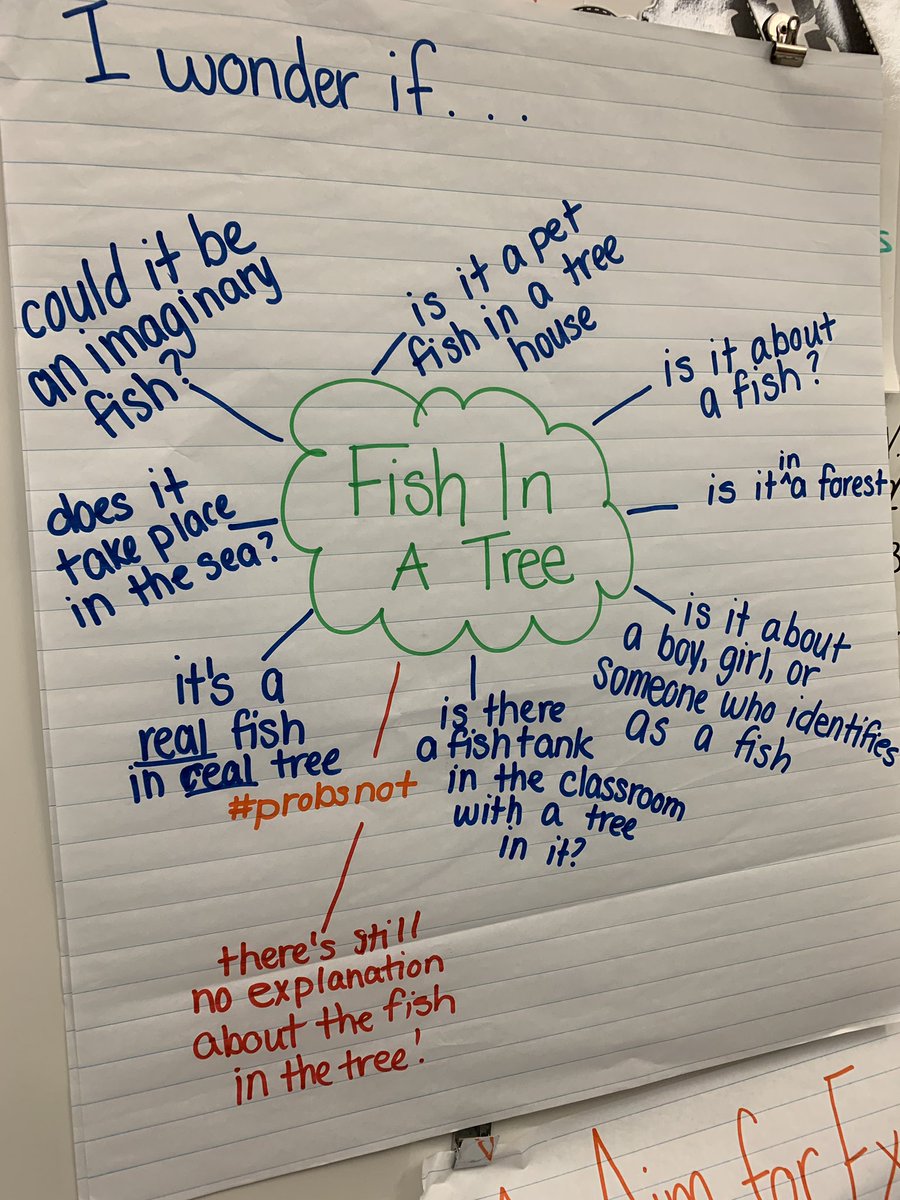 I wonder if...
could it be
an imaginary
fish?
is it a pet
fish in a tree
house
is it about
a fish?
does it
take place
in the sea?
Fish In
A Tree
in
is it ^a forest
it's a
real fish
in real tree
#probsnot
is there
a fish tank
in the classroom
with a tree
in it?
is it about
a boy, girl, or
someone who identifies
as a fish
there's still
no explanation
about the fish
in the tree!
Aim for Ex